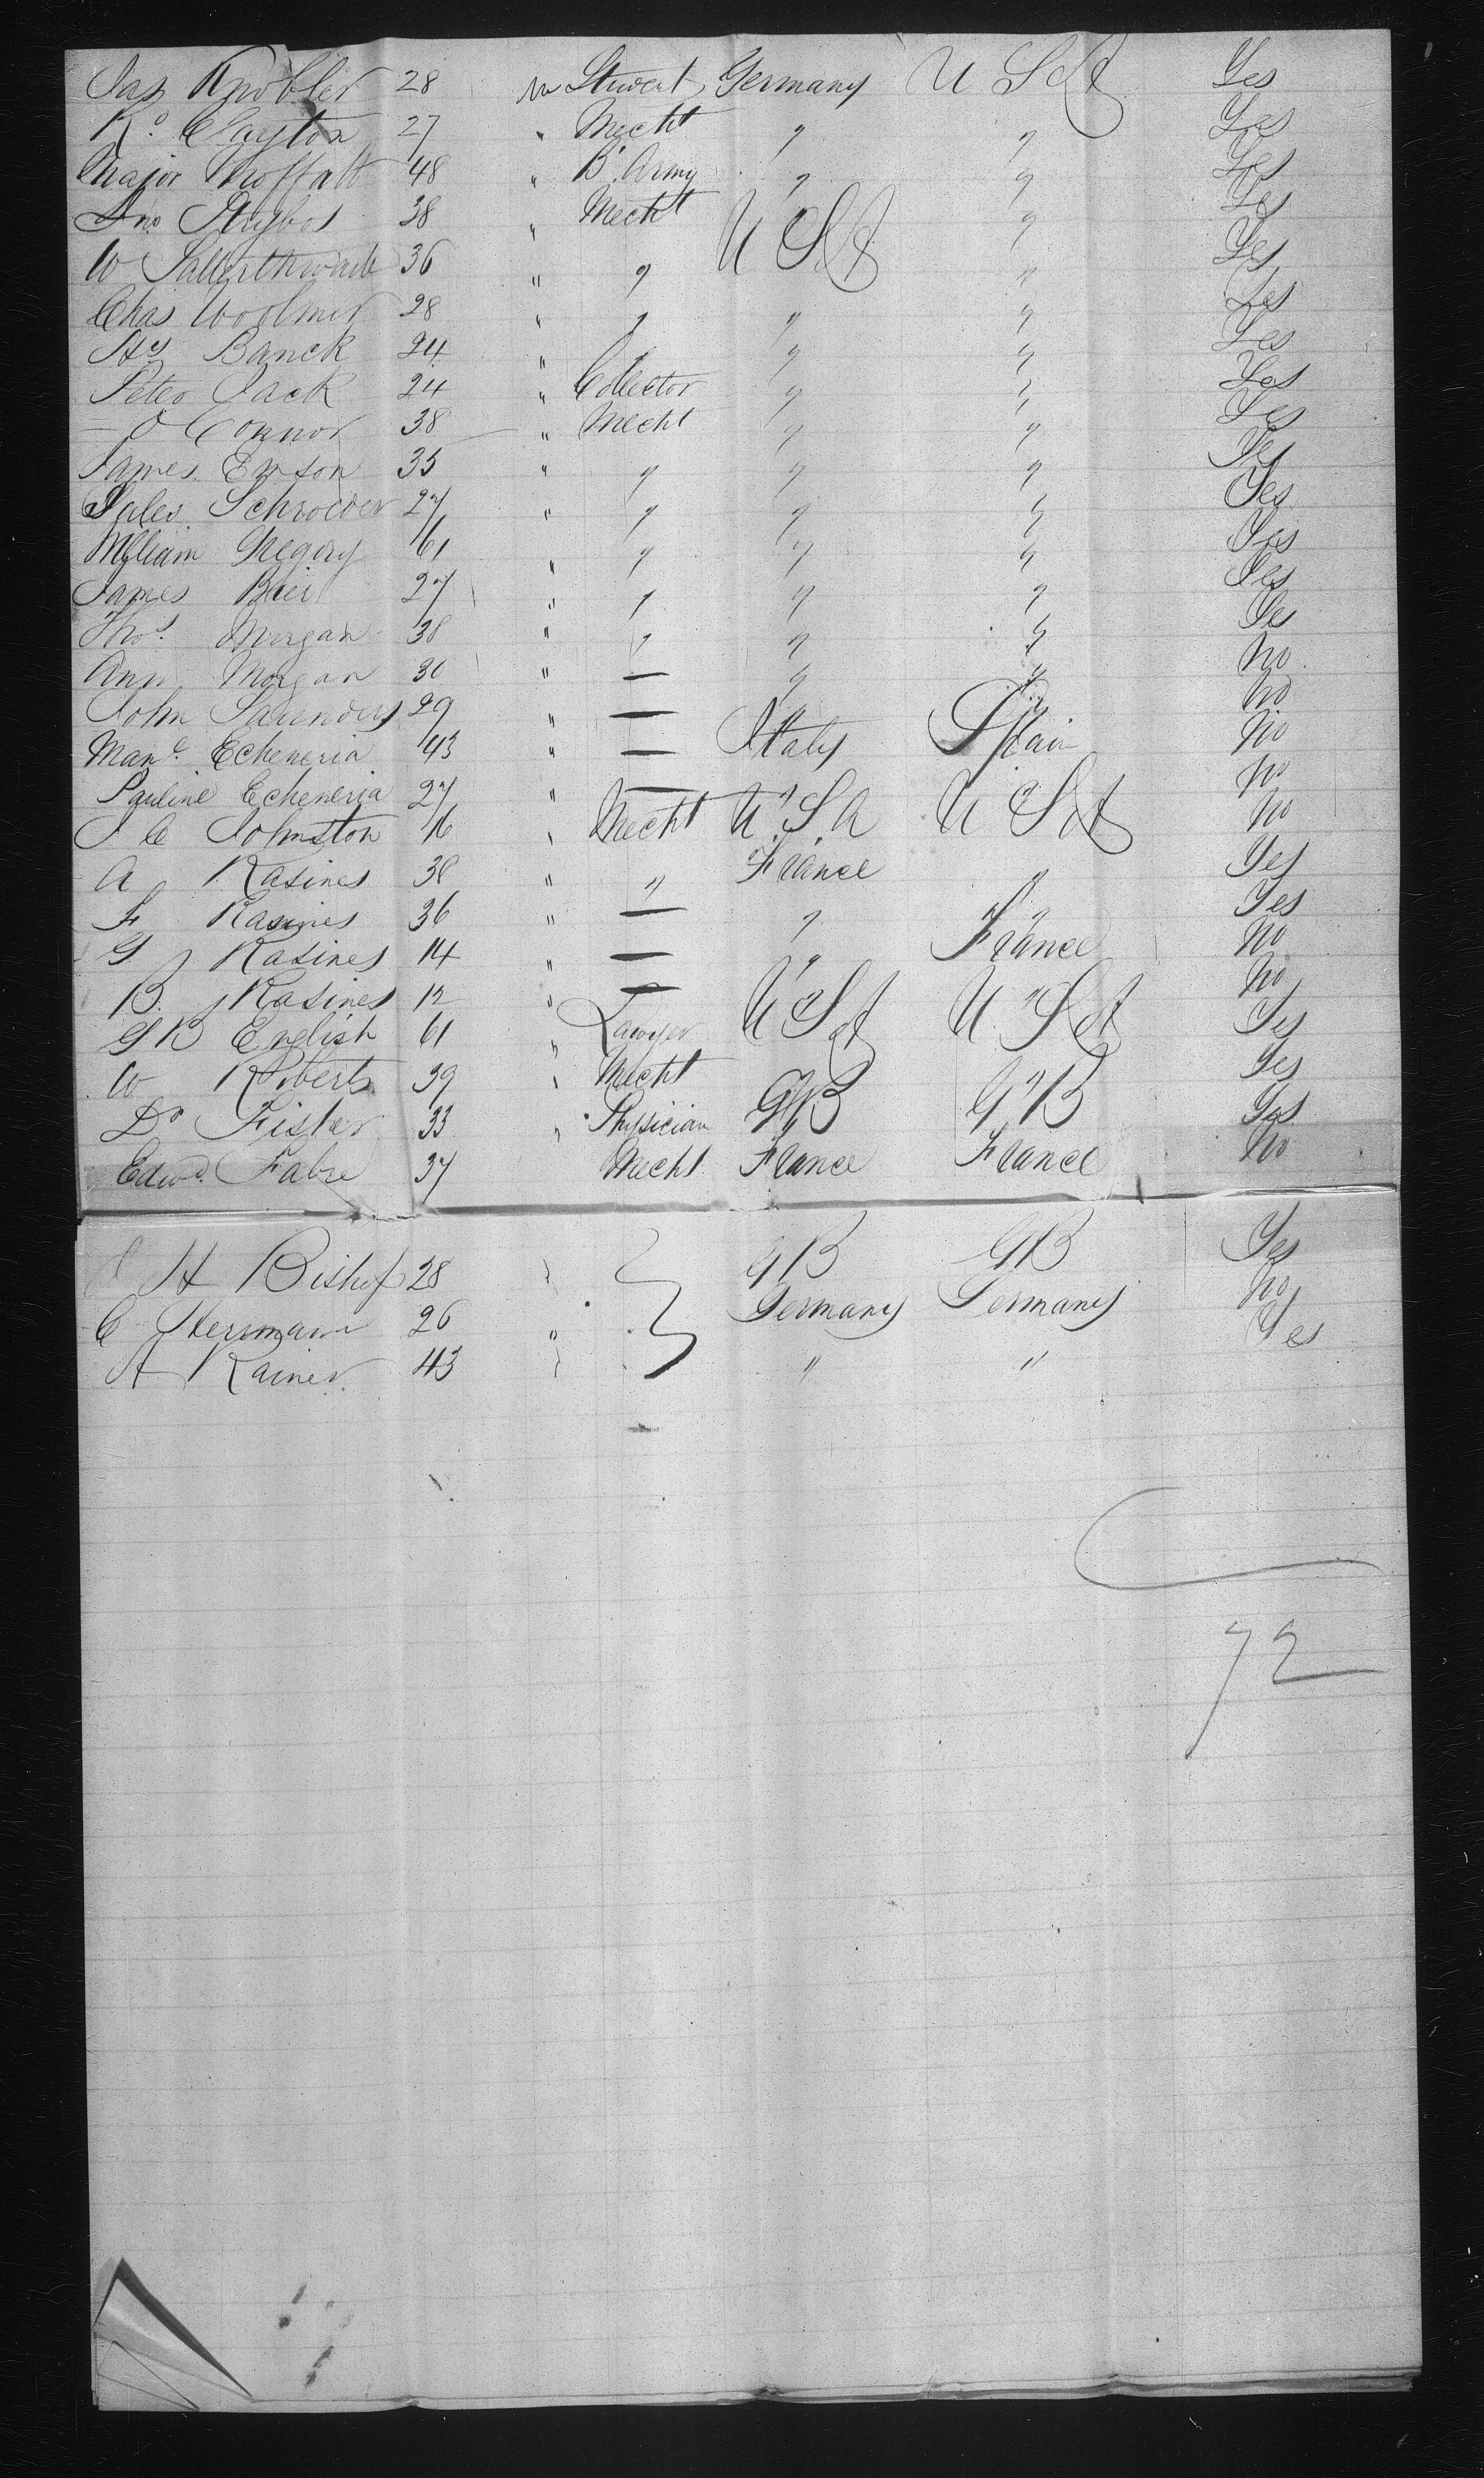 Jas Knobler 28 m Student Germany U S A Yes
Ro. Clayton 27 " Mecht " " Yes
Major Moffatt 48 " B. Army " " Yes
Jno 38 " Mecht U S A " Yes
W Satterthwaite 36 " " " Yes
Chas Woolmer 28 " " " " Yes
Hy Banck 24 " " " " Yes
Peter Jack 24 " Collector " " Yes
— O Connor 38 " Mecht " " Yes
James Ewson 35 " " " " Yes
Schroeder 27 " " " " Yes
William Gregory 61 " " " " Yes
James 27 " " " " Yes
Thos. Morgan 38 " " " " Yes
Ann Morgan 30 " — " " No
John Saunders 29 " — " " No
Manl. Echeveria 43 " — Italy Spain No
Pauline Echeveria 27 " — " " No
J C Johnston 16 " Mecht U.S.A U S A No
A Rasines 38 " " France " Yes
F Rasines 36 " — " " Yes
G Rasines 14 " — " France No
B. Rasines 12 " — " " No
G B English 61 " Lawyer U S A U S A Yes
W Roberts 39 " Mecht " " Yes
Dr Fisher 33 " Physician G B G B Yes
Edwd. Fabre 37 Mecht. France France No
H Bishop 28 " G B G B Yes
C Herrmann 26 " Germany Germany No
A Rainer 43 " " " Yes
72